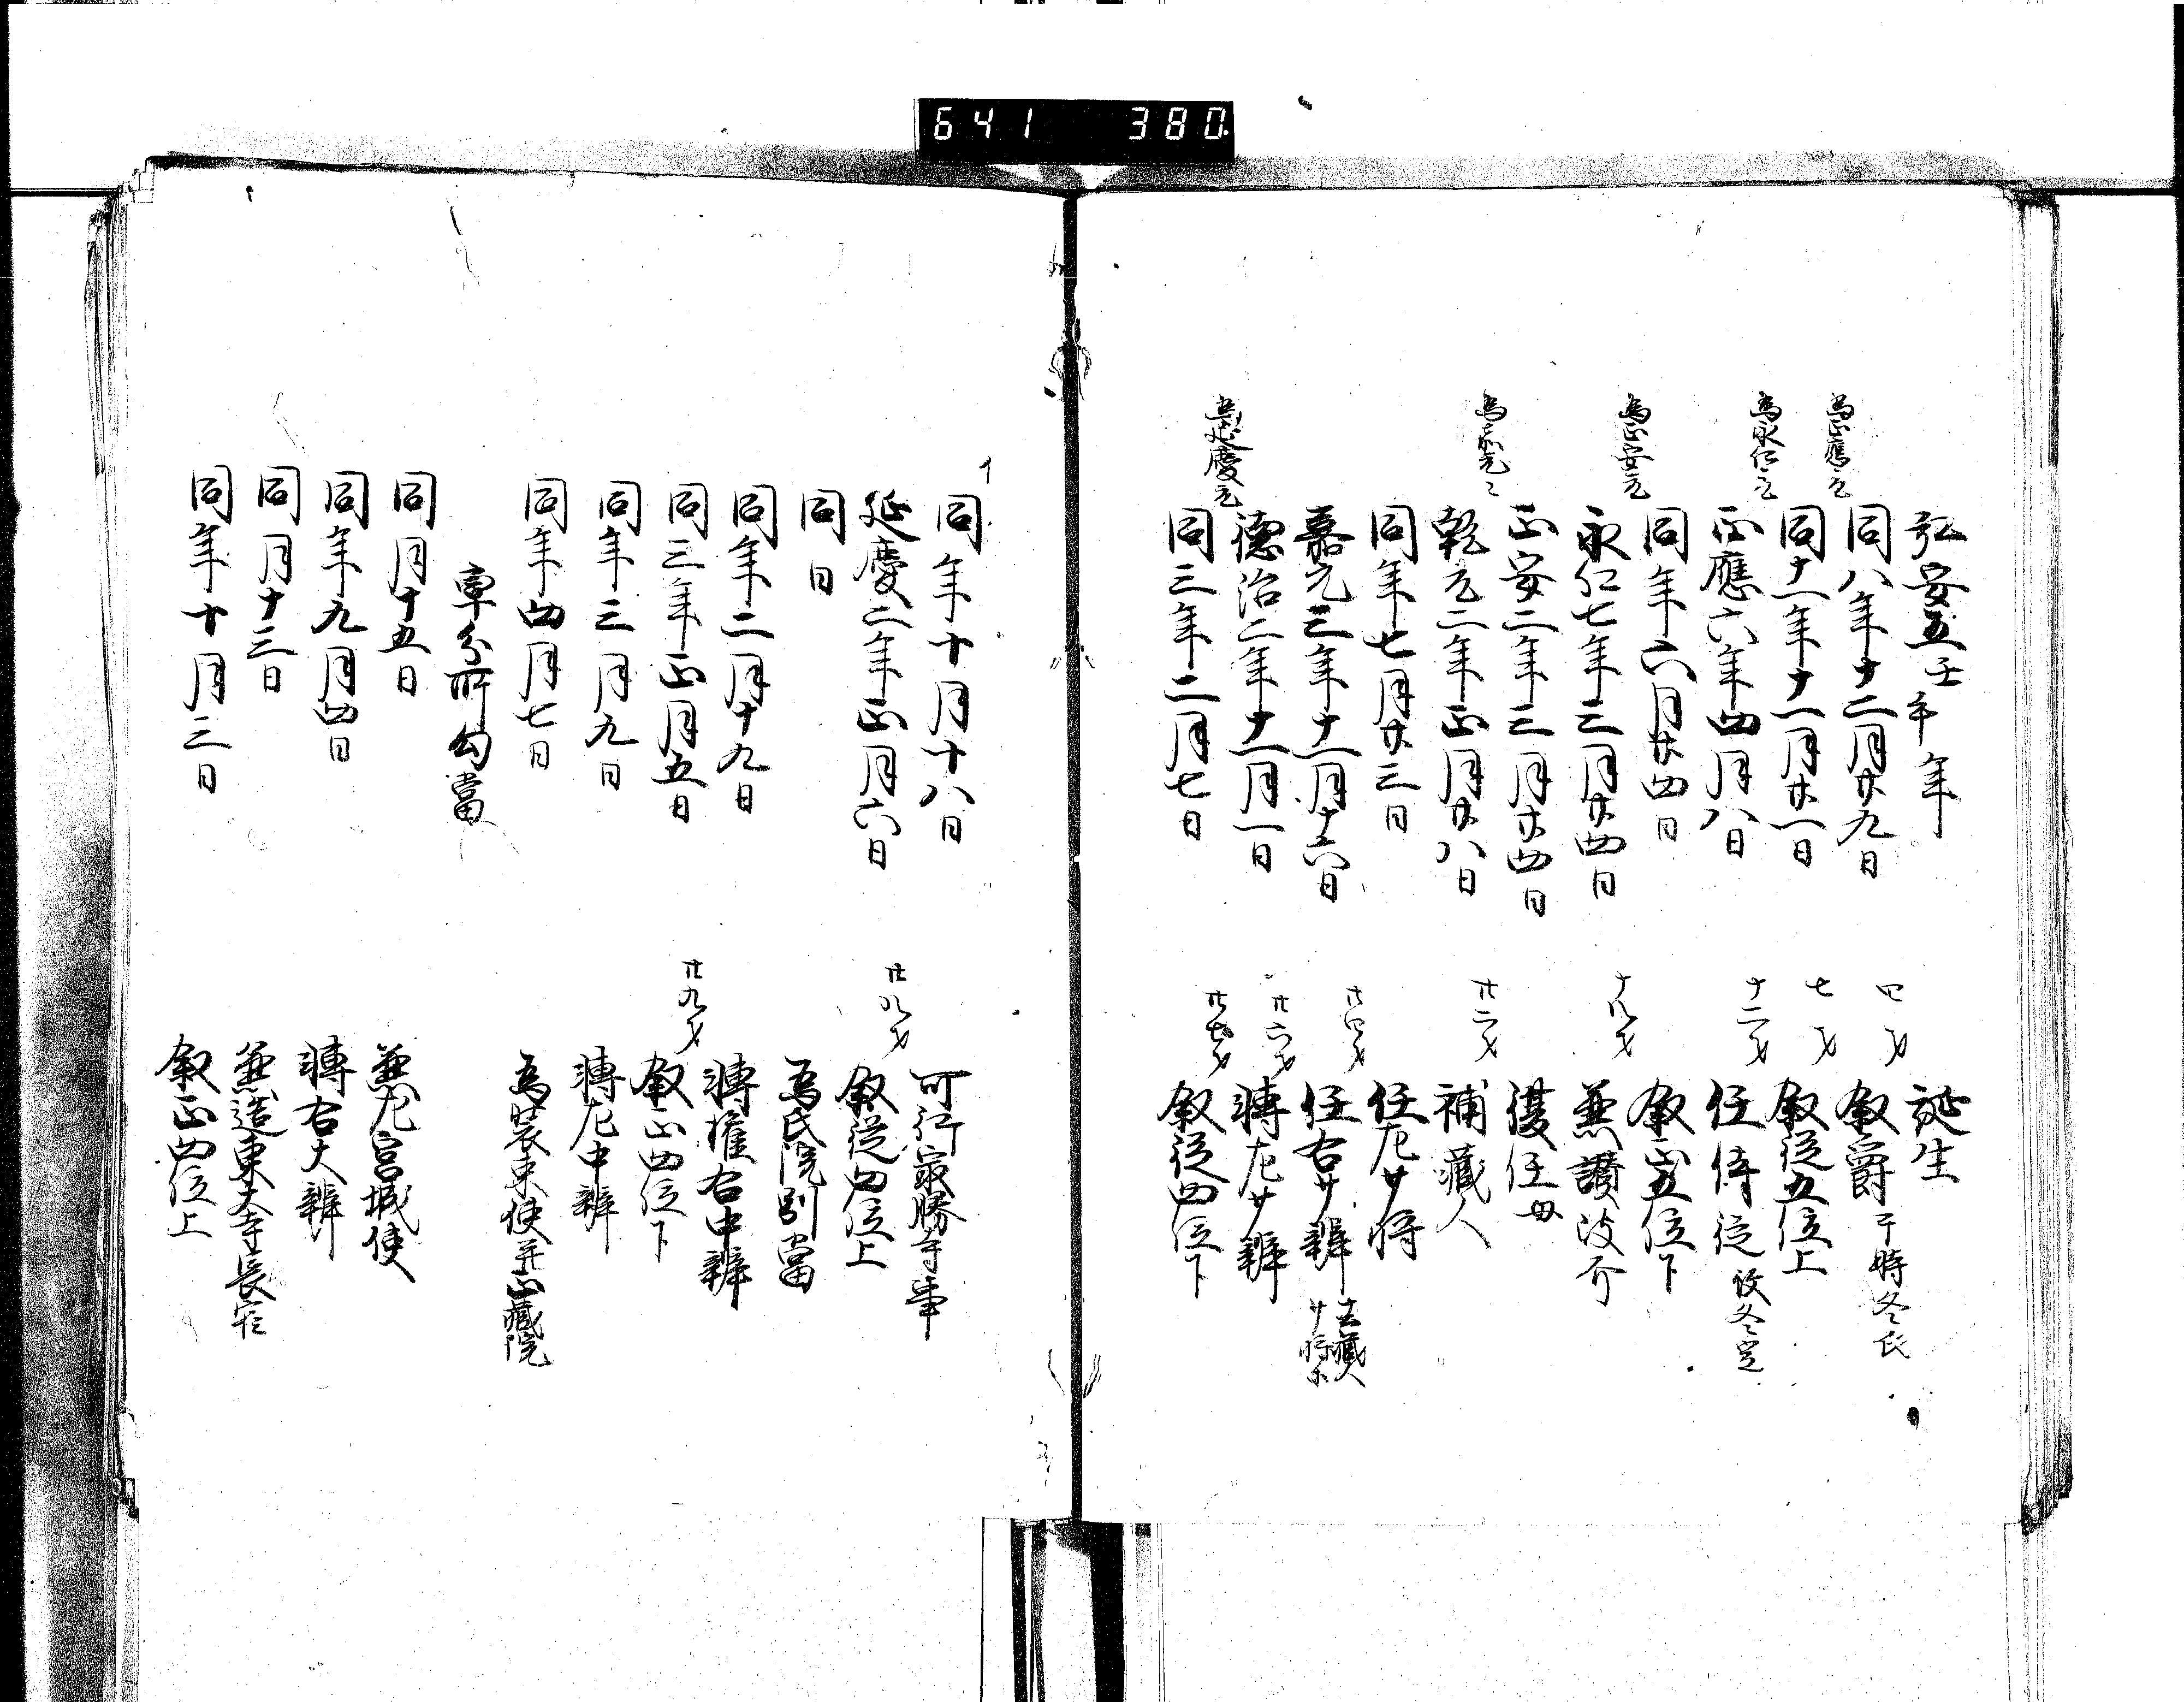 641 380
弘安五壬午年 誕生
同八年十二月廿九日 四才 叙爵 于時冬氏
為正應元
同十一年十一月廿一日 七才 叙従五位上
為永仁元
正應六年四月八日 十二才 任侍従 改冬定
同年六月廿四日 叙正五位下
為正安元
永仁七年三月廿四日 十八才 兼讃岐介
正安二年三月廿四日 復任母
為嘉元元
乾元二年正月廿八日 廿二才 補蔵人
同年七月廿三日 任左少将
嘉元三年十一月十六日 廿四才 任右少辨 去蔵人少将
徳治二年十一月一日 廿六才 轉左少辨
為延慶元
同三年二月七日 廿七才 叙従四位下
同年十月十八日 可行最勝寺事
延慶二年正月六日 廿八才 叙従四位上
同日 為氏院別當
同年二月十九日 轉権右中辨
同三年正月五日 廿九才 叙正四位下
同年三月九日 轉左中辨
同年四月七日 為装束使并正蔵院
率分所勾當
同月十五日 兼左宮城使
同年九月四日 轉右大辨
同月十三日 兼造東大寺長官
同年十月三日 叙正四位上